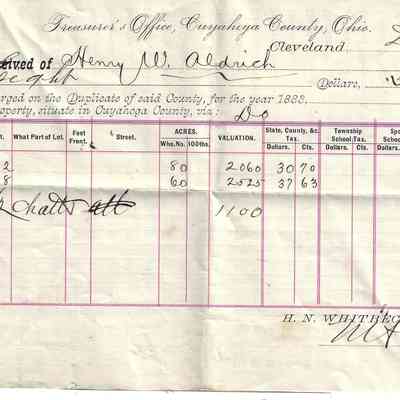 Treasurer's Office, Cuyahoga County, Ohio.
Cleveland
ceived of Henry W. Aldrich
eight Dollars,
arged on the Duplicate of said County, for the year 1883.
operty, situate in Cuyahoga County, viz: Do
t. What Part of Lot. Feet Front. Street. ACRES. Who. No. 100ths. VALUATION. State, County, &c. Tax. Dollars. Cts. Township School Tax. Dollars. Cts. Spe Scho Dollars.
2 80 2060 30 70
8 60 2525 37 63
Chatts att 1100
H. N. WHITBEC